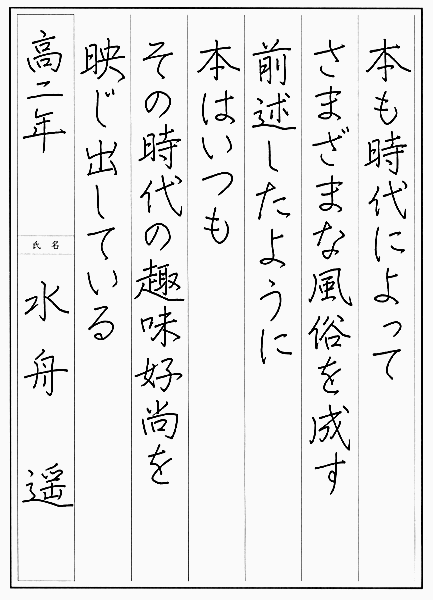 本も時代によって
さまざまな風俗を成す
前述したように
本はいつも
その時代の趣味好尚を
映じ出している
高二年
氏名
水舟 遥